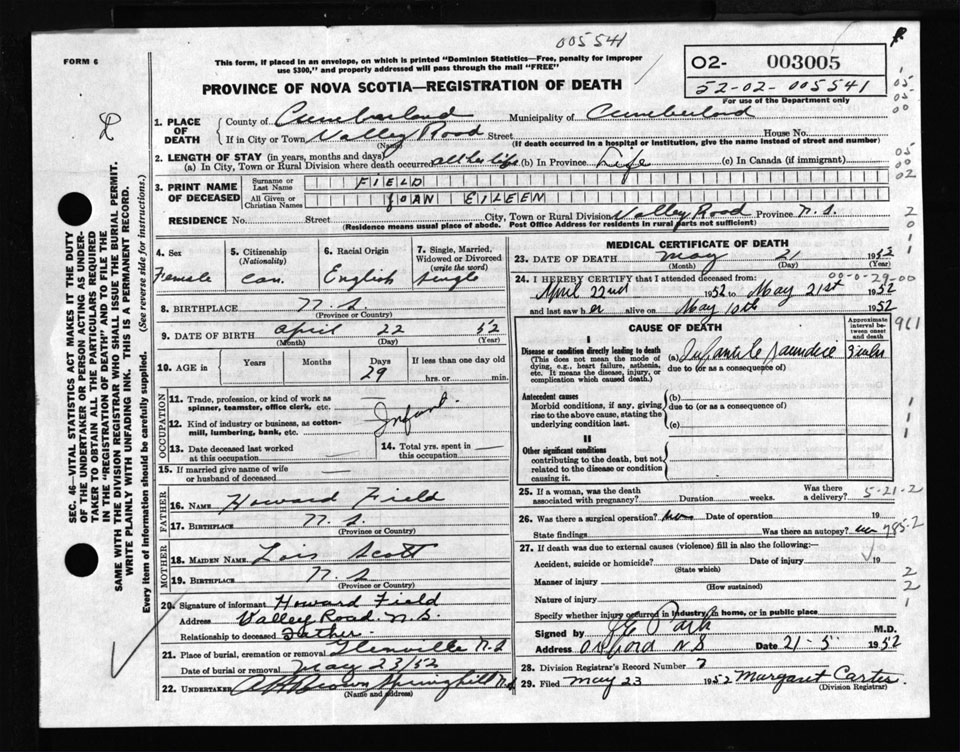 005541
FORM 6
This form, if placed in an envelope, on which is printed "Dominion Statistics—Free, penalty for improper
use $300," and properly addressed will pass through the mail "FREE"
O2- 003005
52-02-005541
For use of the Department only
PROVINCE OF NOVA SCOTIA—REGISTRATION OF DEATH
1. PLACE OF DEATH
County of Cumberland Municipality of Cumberland
If in City or Town Valley Road Street House No.
(Name) (If death occurred in a hospital or institution, give the name instead of street and number)
2. LENGTH OF STAY (in years, months and days)
(a) In City, Town or Rural Division where death occurred all her life (b) In Province Life (c) In Canada (if immigrant)
3. PRINT NAME OF DECEASED
Surname or Last Name FIELD
All Given or Christian Names JOAN EILEEN
RESIDENCE No. Street City, Town or Rural Division Valley Road Province N.S.
(Residence means usual place of abode. Post Office Address for residents in rural parts not sufficient)
4. Sex Female
5. Citizenship (Nationality) Can.
6. Racial Origin English
7. Single, Married, Widowed or Divorced (write the word) Single
8. BIRTHPLACE N.S.
(Province or Country)
9. DATE OF BIRTH April 22 52
(Month) (Day) (Year)
10. AGE in Years Months Days 29 If less than one day old hrs. or min.
OCCUPATION
11. Trade, profession, or kind of work as spinner, teamster, office clerk, etc.
12. Kind of industry or business, as cotton-mill, lumbering, bank, etc. Infant
13. Date deceased last worked at this occupation
14. Total yrs. spent in this occupation
15. If married give name of wife or husband of deceased
FATHER
16. NAME Howard Field
17. BIRTHPLACE N.S.
(Province or Country)
MOTHER
18. MAIDEN NAME Lois Scott
19. BIRTHPLACE N.S.
(Province or Country)
20. Signature of informant Howard Field
Address Valley Road. N.S.
Relationship to deceased Father.
21. Place of burial, cremation or removal Glenville N.S
Date of burial or removal May 23/52
22. UNDERTAKER Brown Springhill N.S
(Name and address)
MEDICAL CERTIFICATE OF DEATH
23. DATE OF DEATH May 21 1952
(Month) (Day) (Year)
00-0-29-00
24. I HEREBY CERTIFY that I attended deceased from:
April 22nd 1952 to May 21st 1952
and last saw her alive on May 10th 1952
CAUSE OF DEATH
Approximate interval between onset and death
I
Disease or condition directly leading to death (a) Infantile Jaundice 3 wks
(This does not mean the mode of dying, e.g., heart failure, asthenia, etc. It means the disease, injury, or complication which caused death.)
due to (or as a consequence of)
Antecedent causes (b)
Morbid conditions, if any, giving rise to the above cause, stating the underlying condition last.
due to (or as a consequence of)
(c)
II
Other significant conditions
contributing to the death, but not related to the disease or condition causing it.
25. If a woman, was the death associated with pregnancy? Duration weeks. Was there a delivery? 5-21-2
26. Was there a surgical operation? no Date of operation 19
State findings Was there an autopsy? no 795-2
27. If death was due to external causes (violence) fill in also the following:—
Accident, suicide or homicide? Date of injury 19
(State which)
Manner of injury
(How sustained)
Nature of injury
Specify whether injury occurred in industry, in home, or in public place
Signed by Park M.D.
Address Oxford N S Date 21-5 1952
28. Division Registrar's Record Number 7
29. Filed May 23 1952 Margaret Carter
(Division Registrar)
SEC. 46—VITAL STATISTICS ACT MAKES IT THE DUTY
OF THE UNDERTAKER OR PERSON ACTING AS UNDER-
TAKER TO OBTAIN ALL THE PARTICULARS REQUIRED
IN THE "REGISTRATION OF DEATH" AND TO FILE THE
SAME WITH THE DIVISION REGISTRAR WHO SHALL ISSUE THE BURIAL PERMIT.
WRITE PLAINLY WITH UNFADING INK. THIS IS A PERMANENT RECORD.
Every item of information should be carefully supplied. (See reverse side for instructions.)